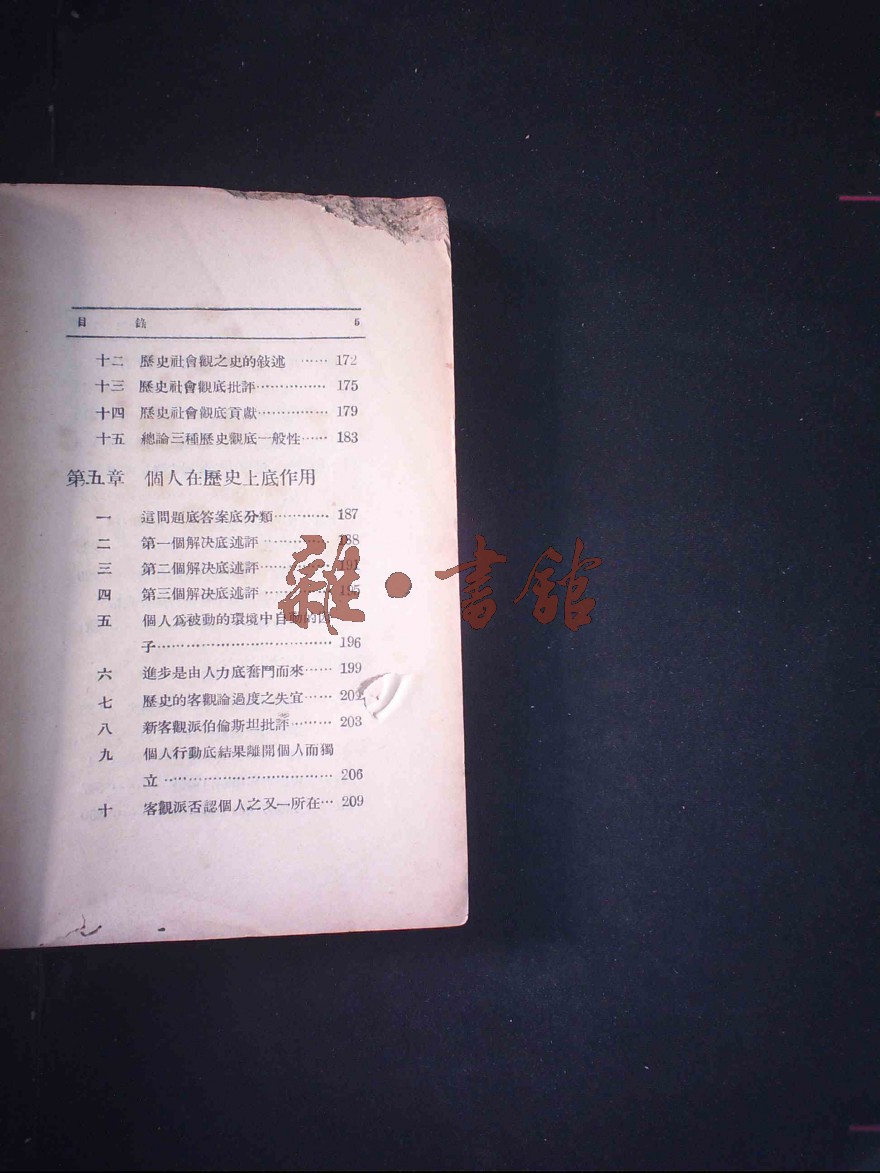 目 錄 5
十二 歷史社會觀之史的敍述 …… 172
十三 歷史社會觀底批評…………… 175
十四 歷史社會觀底貢獻…………… 179
十五 總論三種歷史觀底一般性…… 183
第五章 個人在歷史上底作用
一 這問題底答案底分類………… 187
二 第一個解決底述評………… 188
三 第二個解決底述評………… 191
四 第三個解決底述評………… 195
五 個人爲被動的環境中自動的因
子…………………………… 196
六 進步是由人力底奮鬥而來…… 199
七 歷史的客觀論過度之失宜…… 202
八 新客觀派伯倫斯坦批評……… 203
九 個人行動底結果離開個人而獨
立 …………………………… 206
十 客觀派否認個人之又一所在… 209
雜·書館